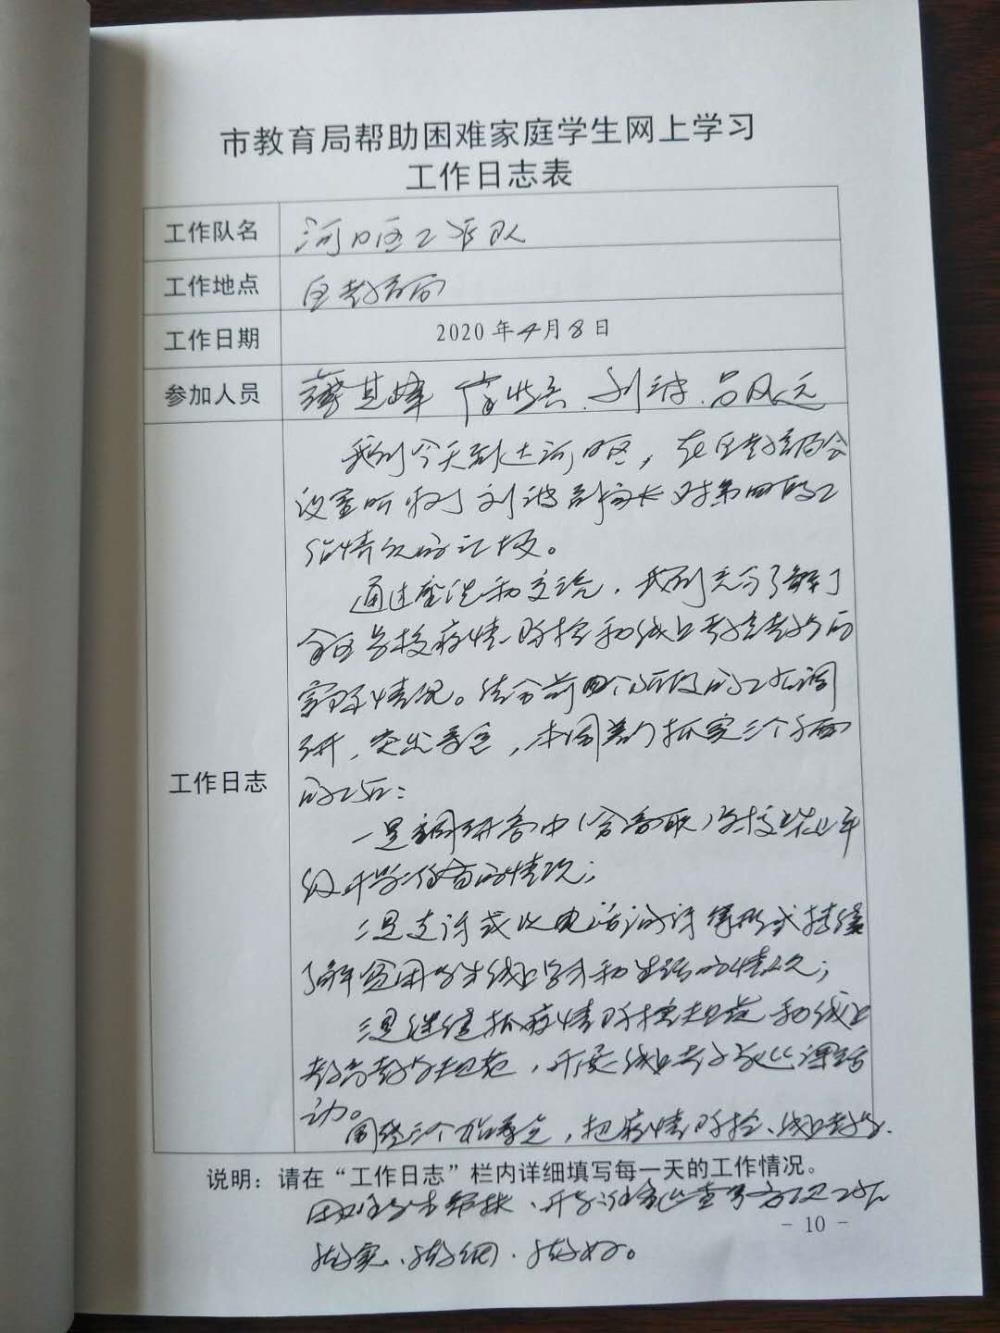 市教育局帮助困难家庭学生网上学习
工作日志表
工作队名 河口区工作队
工作地点 区教育局
工作日期 2020年4月8日
参加人员 薛其峰 刘波 吕风远
工作日志
我们今天到达河口区，在区教育局会
议室听取了刘波副局长对第四的工
作情况的汇报。
通过座谈和交流，我们充分了解了
全区各校疫情防控和线上教育教学的
实际情况。结合前四个阶段的工作调
研，突出重点，本周着力抓实三个方面
的工作：
一是调研高中（含高职）学校毕业年
级开学准备的情况；
二是走访或以电话访谈等形式持续
了解贫困学生线上学习和生活的情况；
三是继续抓疫情防控规范和线上
教育教学规范，开展线上教学听课活
动。
围绕三个工作重点，把疫情防控、线上教学、
说明：请在“工作日志”栏内详细填写每一天的工作情况。
困难学生帮扶、开学准备等方面工作
做实、做细、做好。
- 10 -